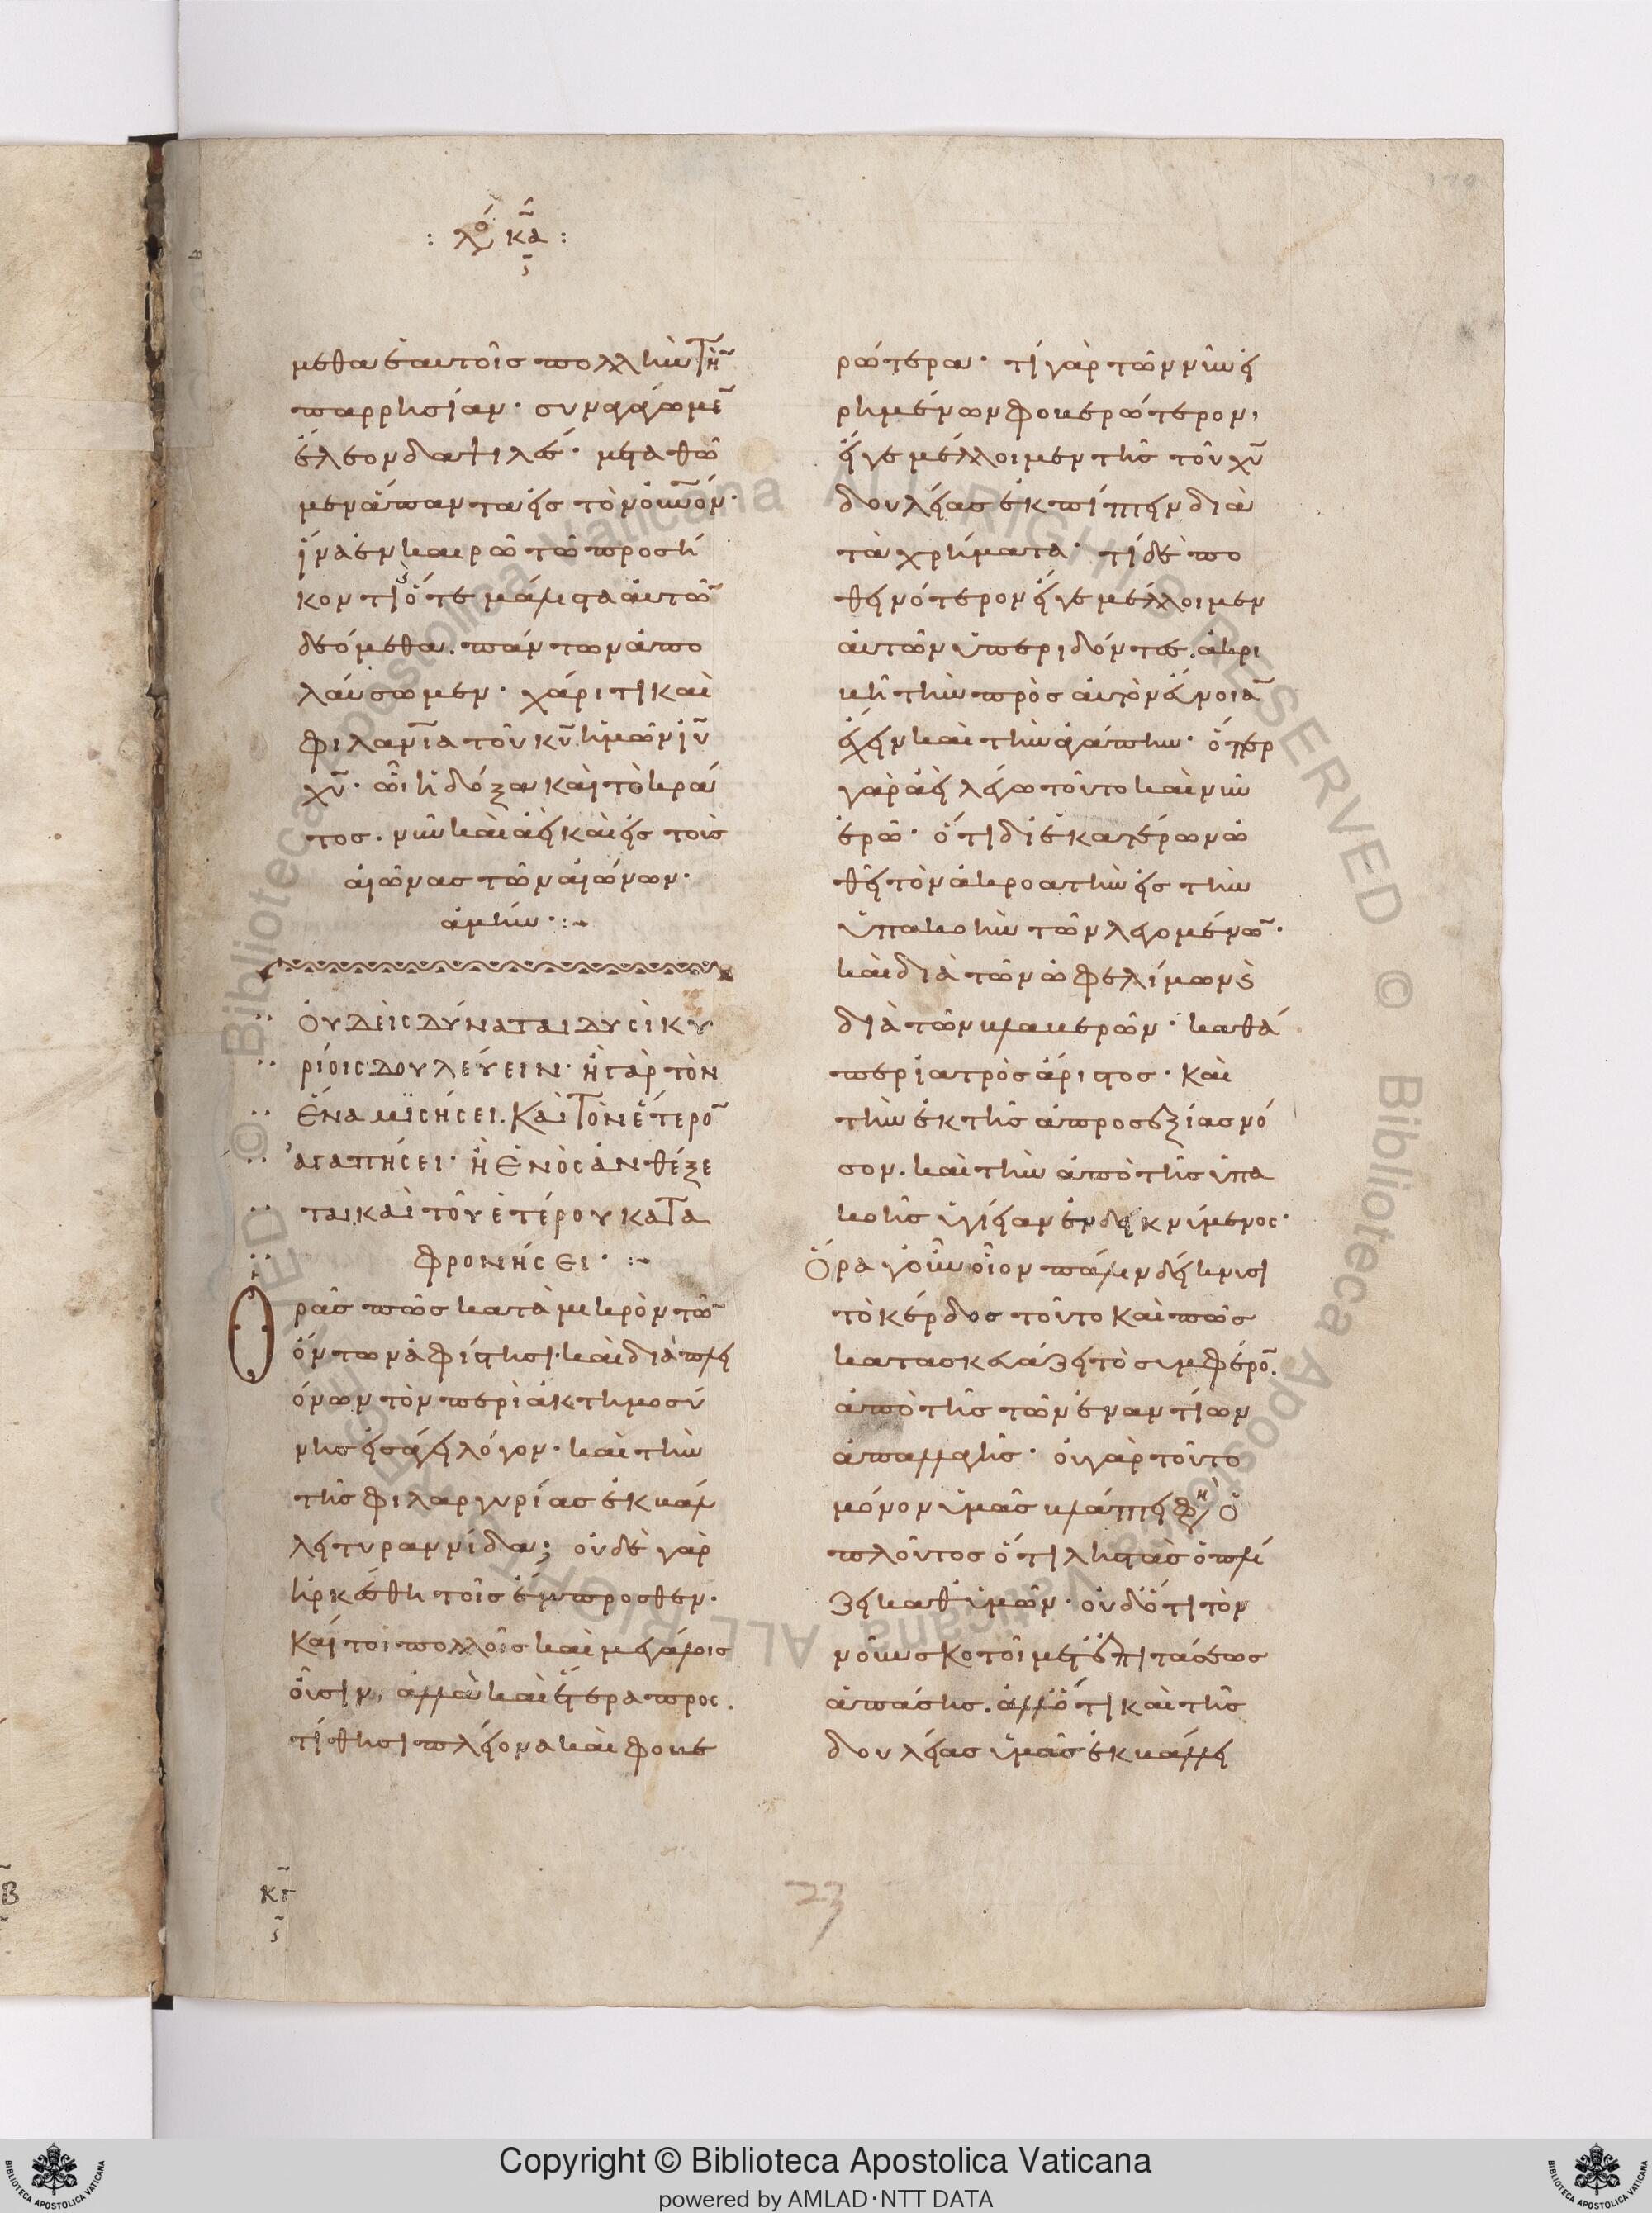 : λό κα :
μεθα ἑαυτοῖς πολλὴν τὴν
παρρησίαν· συναγάγωμεν
ἔλεον δαψιλές· μεταθῶ
μεν ἅπαντα εἰς τὸν οὐνον·
ἵνα ἐν καιρῶ τῶ προσή
κοντι ὅτε μάλιστα αὐτῶν
δεόμεθα. πάντων ἀπο
λαύσωμεν· χάριτι καὶ
φιλανια τοῦ κυ ἡμῶν ιυ
χυ· ὧ ἡ δόξα καὶ τὸ κρά
τος. νῦν καὶ ἀεὶ καὶ εἰς τοὺς
αἰῶνας τῶν αἰώνων·
ἀμήν· :~
ΟΥΔΕΙΣ ΔΥΝΑΤΑΙ ΔΥΣΙ ΚΥ
ΡΙΟΙΣ ΔΟΥΛΕΥΕΙΝ· Ἢ ΓΑΡ ΤΟΝ
ΕΝΑ ΜΙΣΗΣΕΙ. ΚΑΙ ΤΟΝ ΕΤΕΡΟΝ
ΑΓΑΠΗΣΕΙ· Ἢ ΕΝΟΣ ΑΝΘΕΞΕ
ΤΑΙ ΚΑΙ ΤΟΥ ΕΤΕΡΟΥ ΚΑΤΑ
ΦΡΟΝΗΣΕΙ· :~
Ὁρᾶς πῶς κατὰ μικρὸν τῶν
ὄντων ἀφίστησι· καὶ διὰ πλει
όνων τὸν περὶ ἀκτημοσύ
νης εἰσάγει λόγον· καὶ τὴν
τῆς φιλαργυρίας ἐκβάλ
λει τυραννίδα; οὐδὲ γὰρ
ἠρκέσθη τοῖς ἔμπροσθεν·
καίτοι πολλοῖς καὶ μεγάλοις
οὖσιν, ἀλλὰ καὶ ἕτερα προς
τίθησι πλείονα καὶ φοβε
ρώτερα· τί γὰρ τῶν νῦν εἰ
ρημένων φοβερώτερον,
εἴγε μέλλοιμεν τῆς τοῦ χυ
δουλείας ἐκπίπτειν διὰ
τὰ χρήματα· τί δὲ πο
θεινότερον εἴγε μέλλοιμεν
αὐτῶν ὑπεριδόντες. ἀκρι
βῆ τὴν πρὸς αὐτὸν εὔνοιαν
ἔχειν καὶ τὴν ἀγάπην· ὅπερ
γὰρ ἀεὶ λέγω τοῦτο καὶ νῦν
ἐρῶ· ὅτι δι ἑκατέρων ὠ
θεῖ τὸν ἀκροατὴν εἰς τὴν
ὑπακοὴν τῶν λεγομένων·
καὶ διὰ τῶν ὠφελίμων καὶ
διὰ τῶν βλαβερῶν· καθά
περ ἰατρὸς ἄριστος· καὶ
τὴν ἐκ τῆς ἀπροσεξίας νό
σον. καὶ τὴν ἀπὸ τῆς ὑπα
κοῆς ὑγίειαν ἐνδεικνύμενος·
Ὅρα γοῦν οἷον πάλιν δείκνυσι
τὸ κέρδος τοῦτο καὶ πῶς
κατασκευάζει τὸ συμφέρον.
ἀπὸ τῆς τῶν ἐναντίων
ἀπαλλαγῆς· οὐ γὰρ τοῦτο
μόνον ὑμᾶς βλάπτει φη ὁ
πλοῦτος ὅτι ληστὰς ὁπλί
ζει καθ ὑμῶν· οὐδ ὅτι τὸν
νοῦν σκοτοῖ μετ ἐπιτάσεως
ἁπάσης. ἀλλ ὅτι καὶ τῆς
δουλείας ὑμᾶς ἐκβάλλει
κγ
23
Copyright © Biblioteca Apostolica Vaticana
powered by AMLAD·NTT DATA